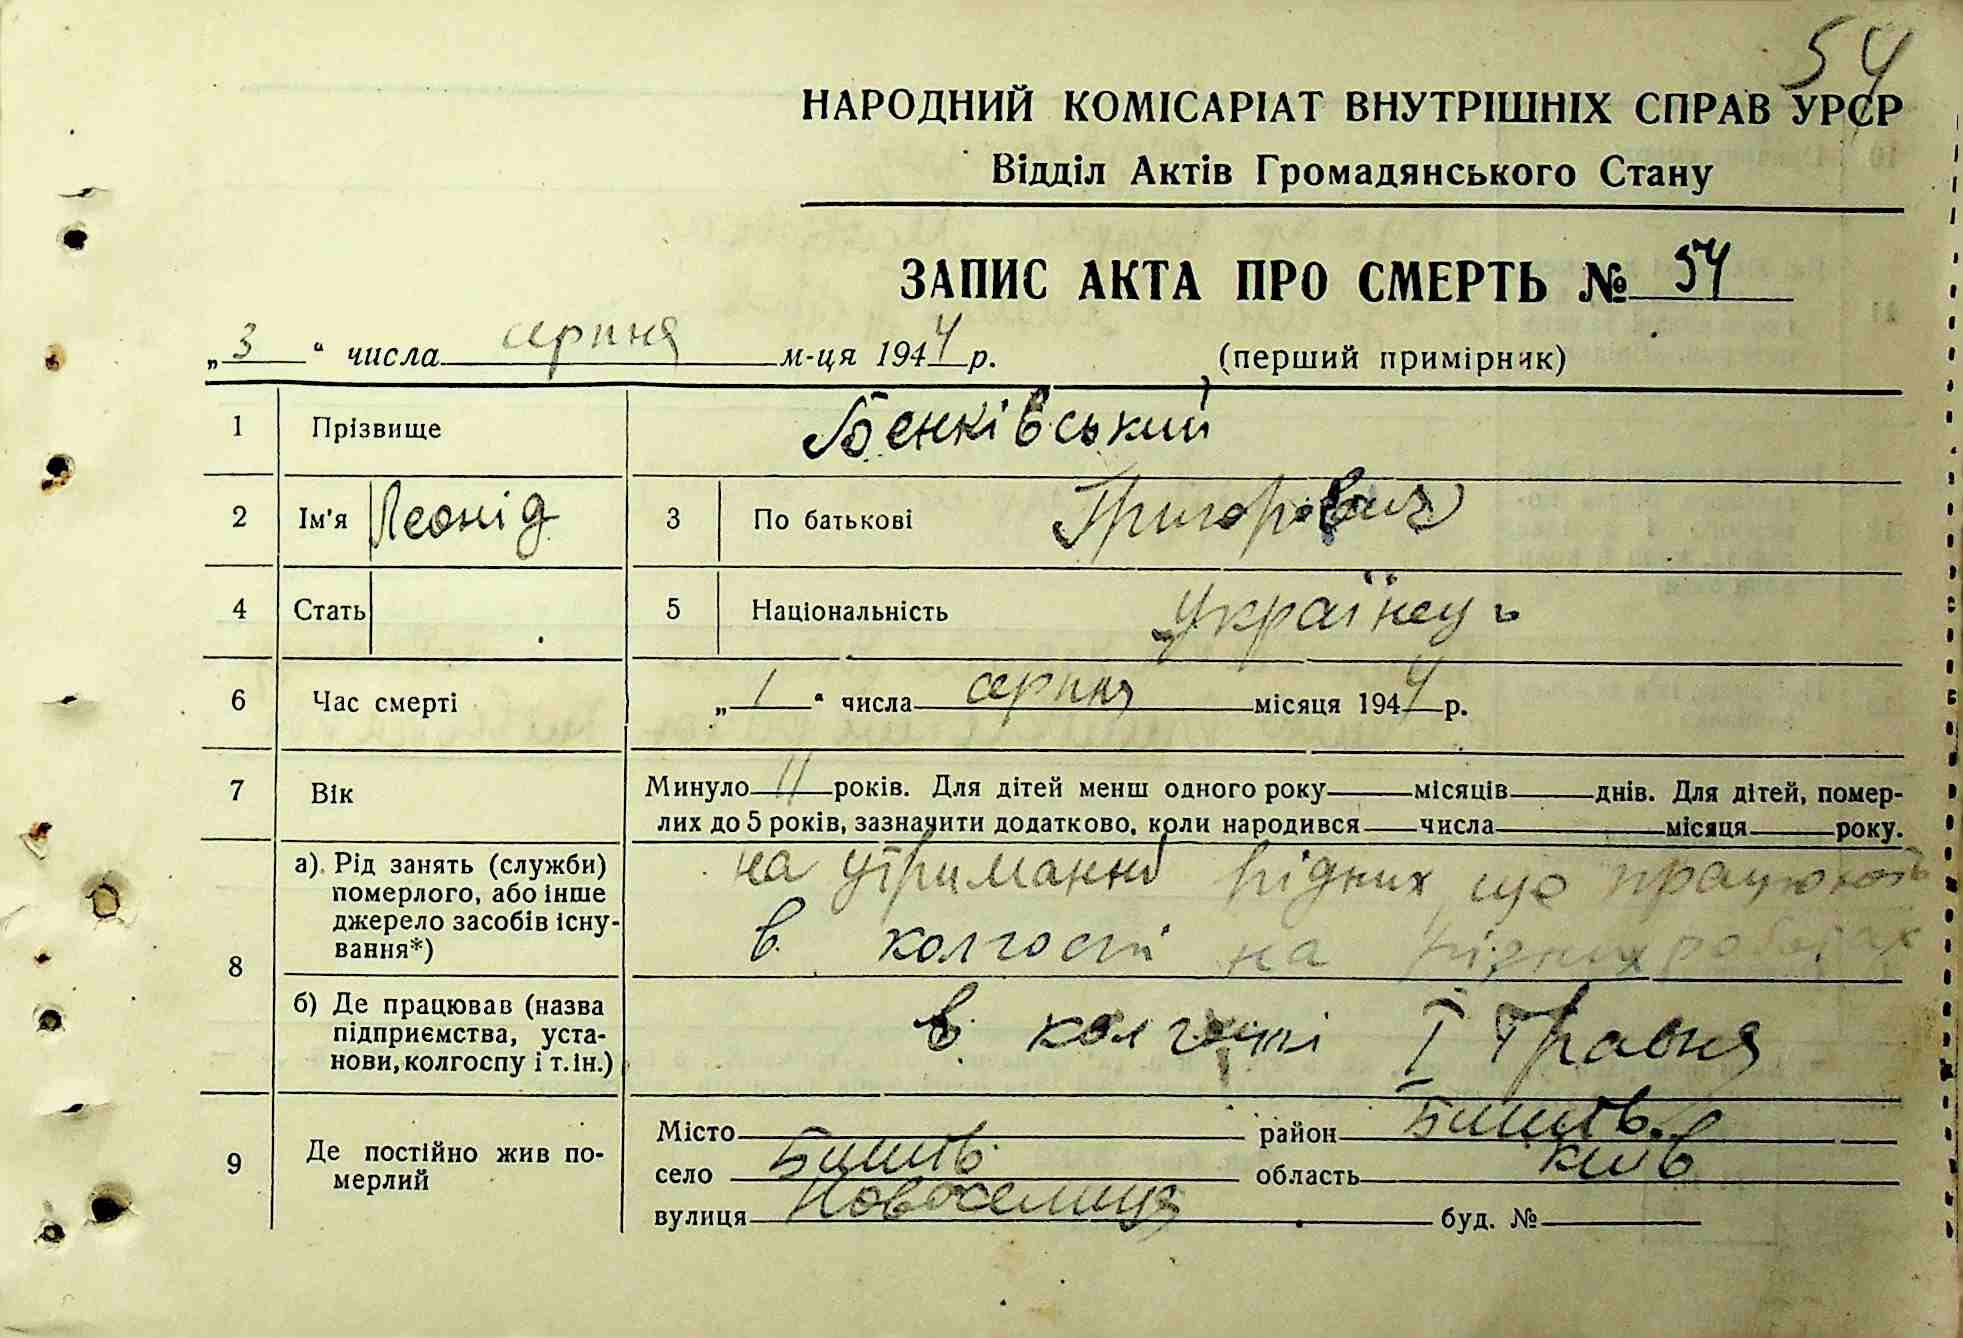 54
НАРОДНИЙ КОМІСАРІАТ ВНУТРІШНІХ СПРАВ УРСР
Відділ Актів Громадянського Стану
ЗАПИС АКТА ПРО СМЕРТЬ № 54
„3“ числа серпня м-ця 1944 р. (перший примірник)
1 Прізвище Бенківський
2 Ім'я Леонід 3 По батькові Григорович
4 Стать 5 Національність Українець
6 Час смерті „1“ числа серпня місяця 1944 р.
7 Вік Минуло 11 років. Для дітей менш одного року місяців днів. Для дітей, помер-
лих до 5 років, зазначити додатково, коли народився числа місяця року.
8 а) Рід занять (служби) померлого, або інше джерело засобів існу-вання*) на утриманні рідних що працюють
в колгоспі на різних роботах
б) Де працював (назва підприємства, уста-нови, колгоспу і т. ін.) в колгоспі І Травня
9 Де постійно жив по-мерлий Місто район Бишів.
село Бишів область Київ
вулиця Новоселиця буд. №